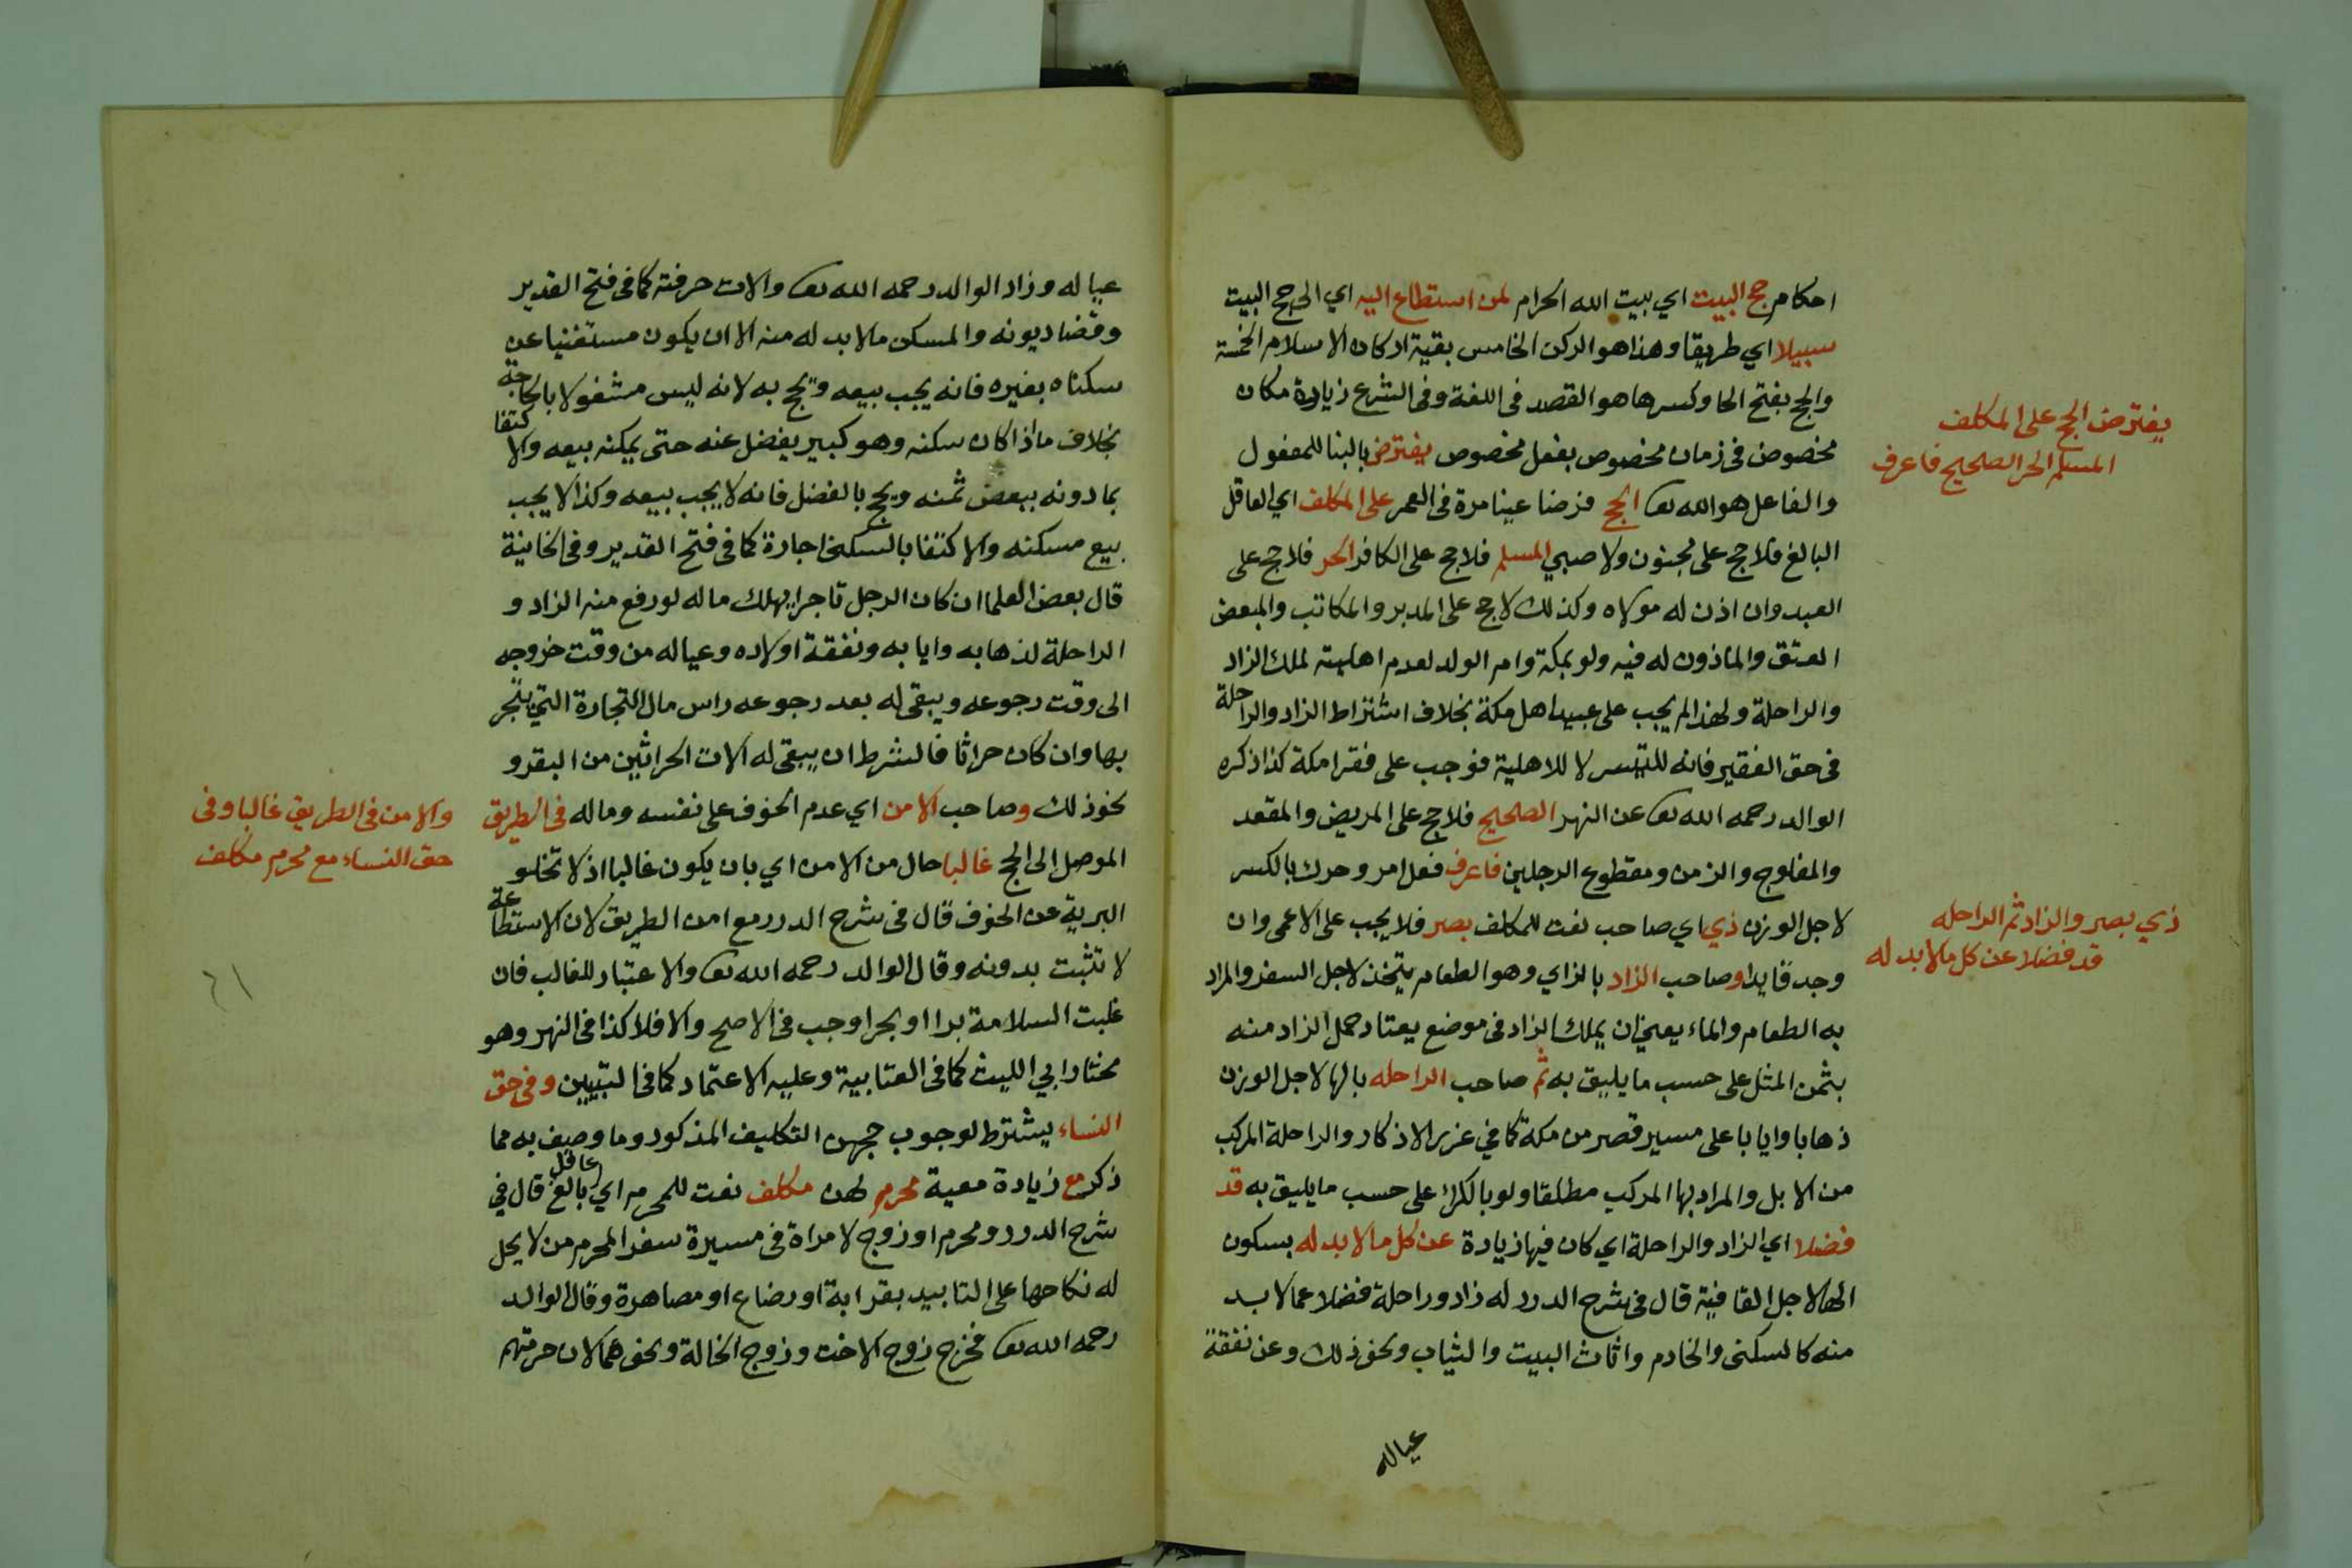 احكام حج البيت اي بيت الله الحرام لمن استطاع اليه اي الى حج البيت
سبيلا اي طريقا وهذا هو الركن الخامس بقية اركان الاسلام الخمسة
والحج بفتح الحا وكسرها هو القصد فى اللغة وفى الشرع زيادة مكان
مخصوص فى زمان مخصوص بفعل مخصوص يفترض بالبنا للمفعول
والفاعل هو الله تعا الحج فرضا عينا مرة فى العمر على المكلف اي العاقل
البالغ فلاحج على مجنون ولا صبي المسلم فلاحج على الكافر الحر فلاحج على
العبد وان اذن له مولاه وكذلك لاحج على المدبر والمكاتب والمبعض
العتق والماذون له فيه ولو بمكة وام الولد لعدم اهليته لملك الزاد
والراحلة ولهذا لم يجب على عبيد اهل مكة بخلاف اشتراط الزاد والراحلة
فى حق الفقير فانه للتيسر لا للاهلية فوجب على فقرا مكة كذا ذكره
الوالد رحمه الله تعا عن النهر الصحيح فلاحج على المريض والمقعد
والمفلوج والزمن ومقطوع الرجلين فاعرف فعل امر وحرك بالكسر
لاجل الوزن ذي اي صاحب نعت للمكلف بصر فلا يجب على الاعمى وان
وجد قايدا وصاحب الزاد بالزاي وهو الطعام يتخذ لاجل السفر والمراد
به الطعام والماء يعنى ان يملك الزاد فى موضع يعتاد حمل الزاد منه
بثمن المثل على حسب ما يليق به ثم صاحب الراحله بالها لاجل الوزن
ذهابا وايابا على مسير قصر من مكة كما في عزير الاذكار والراحلة المركب
من الابل والمراد بها المركب مطلقا ولو بالكراء على حسب ما يليق به قد
فضلا اي الزاد والراحلة اي كان فيها زيادة عن كل ما لا بد له بسكون
الها لاجل القافية قال فى شرح الدرر له زاد وراحلة فضلا عما لا بد
منه كالسكنى والخادم واثاث البيت والثياب ونحو ذلك وعن نفقة
عياله
يفترض الحج على المكلف
المسلم الحر الصحيح فاعرف
ذي بصر والزاد ثم الراحله
قد فضلا عن كل ما لا بد له
عياله وزاد الوالد رحمه الله تعا والات حرفته كما فى فتح القدير
وقضا ديونه والمسكن ما لا بد له منه الا ان يكون مستغنيا عن
سكناه بغيره فانه يجب بيعه ويحج به لانه ليس مشغولا بالحاجة
بخلاف ما اذا كان سكنه وهو كبير يفضل عنه حتى يمكنه بيعه والاكتفا
بما دونه ببعض ثمنه ويحج بالفضل فانه لا يجب بيعه وكذا لا يجب
بيع مسكنه والاكتفا بالسكنى اجارة كما فى فتح القدير وفى الخانية
قال بعض العلما ان كان الرجل تاجرا يملك ماله لو رفع منه الزاد و
الراحلة لذهابه وايابه ونفقة اولاده وعياله من وقت خروجه
الى وقت رجوعه ويبقى له بعد رجوعه راس مال التجارة التي يتجر
بها وان كان حراثا فالشرط ان يبقى له الات الحراثين من البقر و
نحو ذلك وصاحب الامن اي عدم الخوف على نفسه وماله فى الطريق
الموصل الى الحج غالبا حال من الامن اي بان يكون غالبا اذ لا تخلو
البرية عن الخوف قال فى شرح الدرر مع امن الطريق لان الاستطاعة
لا تثبت بدونه وقال الوالد رحمه الله تعا والاعتبار للغالب فان
غلبت السلامة برا او بحرا وجب فى الاصح والا فلا كذا فى النهر وهو
مختار ابي الليث كما فى العتابية وعليه الاعتماد كما فى التبيين وفى حق
النساء يشترط لوجوب حجهن التكليف المذكور وما وصف به مما
ذكر مع زيادة معية محرم لهن مكلف نعت للمحرم اي عاقل بالغ قال في
شرح الدرر ومحرم او زوج لامراة فى مسيرة سفر المحرم من لا يحل
له نكاحها على التابيد بقرابة او رضاع او مصاهرة وقال الوالد
رحمه الله تعا فخرج زوج الاخت وزوج الخالة ونحوهما لان حرمتهم
والامن فى الطريق غالبا وفى
حق النساء مع محرم مكلف
٦١